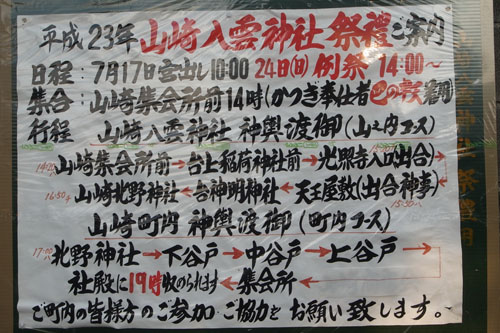 平成23年 山崎八雲神社 祭禮ご案内
日程:7月17日宮出し10:00 24日(日)例祭 14:00〜
集合:山崎集会所前14時(かつぎ奉仕者
行程 山崎八雲神社 神輿渡御(山之内コース)
山崎集会所前→台上稲荷神社前→光照寺入口(出合)
16:50 山崎北野神社←台神明神社←天王屋敷(出合神事)
15:30
山崎町内 神輿渡御(町内コース)
17:00 北野神社→下谷戸→中谷戸→上谷戸→
社殿に19時収められます←集会所←
ご町内の皆様方のご参加 ご協力を お願い致します。